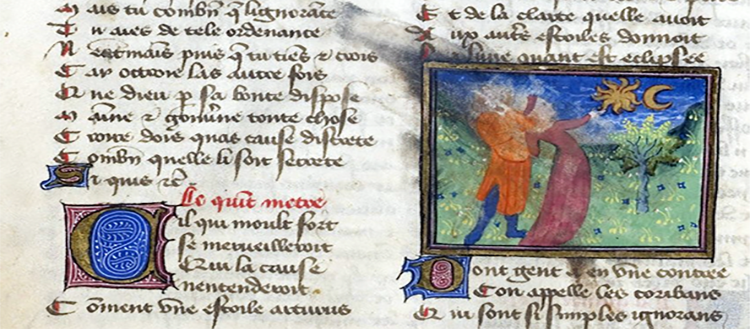 Mais tu combñ q̃ lignorante
Tu aies de tele ordenance
Nest mais puis q̃ tu tiẽs ⁊ crois
Et octroie las autre fois
Que dieu p̃ sa bonte dispose
Maine ⁊ gouũne toute chose
Croire dois quas cause discrete
Combñ quelle li soit secrete
Et quis ⁊c̃
Le quĩt metre
Cil qui moult fort
se merueilleroit
Qui la cause
nentenderoit
Coment vne estoile arturus
Et de la clarte quelle auoit
Aux autr̃s estoiles donnoit
La lune quant est eclipsee
Dont gent a en vne contree
Con appelle les coribans
Qui sont si simples ignorans